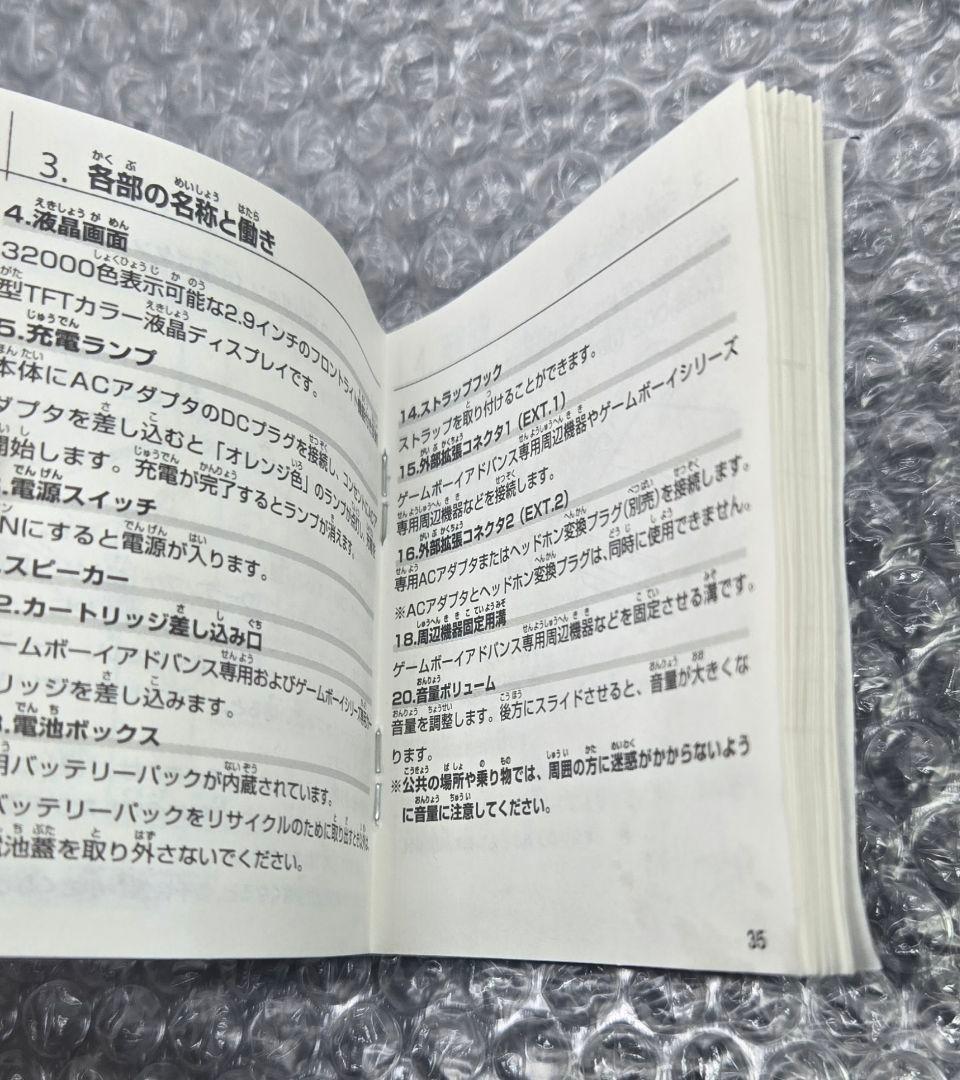 3. 各部の名称と働き
4.液晶画面
32000色表示可能な2.9インチのフロントライト
型TFTカラー液晶ディスプレイです。
5.充電ランプ
本体にACアダプタのDCプラグを接続し、コンセントにACア
ダプタを差し込むと「オレンジ色」のランプが点灯し、充電を
開始します。充電が完了するとランプが消えます。
.電源スイッチ
Nにすると電源が入ります。
.スピーカー
2.カートリッジ差し込み口
ームボーイアドバンス専用およびゲームボーイシリーズ
リッジを差し込みます。
3.電池ボックス
用バッテリーパックが内蔵されています。
バッテリーパックをリサイクルのために取り出すとき以外は、
池蓋を取り外さないでください。
14.ストラップフック
ストラップを取り付けることができます。
15.外部拡張コネクタ1(EXT.1)
ゲームボーイアドバンス専用周辺機器やゲームボーイシリーズ
専用周辺機器などを接続します。
16.外部拡張コネクタ2(EXT.2)
専用ACアダプタまたはヘッドホン変換プラグ(別売)を接続します。
※ACアダプタとヘッドホン変換プラグは、同時に使用できません。
18.周辺機器固定用溝
ゲームボーイアドバンス専用周辺機器などを固定させる溝です。
20.音量ボリューム
音量を調整します。後方にスライドさせると、音量が大きくな
ります。
※公共の場所や乗り物では、周囲の方に迷惑がかからないよう
に音量に注意してください。
35